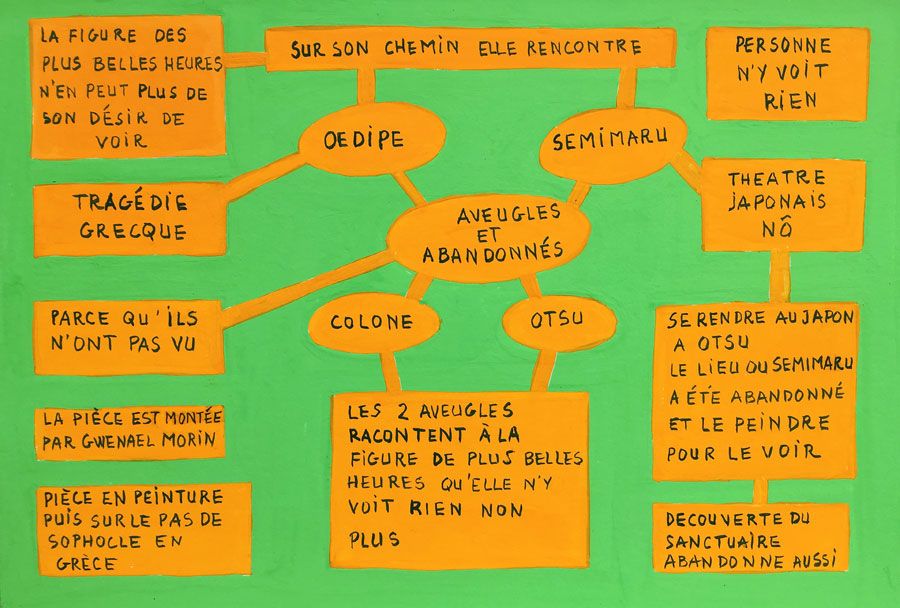 LA FIGURE DES
PLUS BELLES HEURES
N'EN PEUT PLUS DE
SON DÉSIR DE
VOIR
SUR SON CHEMIN ELLE RENCONTRE
PERSONNE
N'Y VOIT
RIEN
OEDIPE
SEMIMARU
TRAGÉDIE
GRECQUE
AVEUGLES
ET
ABANDONNÉS
THEATRE
JAPONAIS
NÔ
PARCE QU'ILS
N'ONT PAS VU
COLONE
OTSU
SE RENDRE AU JAPON
A OTSU
LE LIEU OU SEMIMARU
A ÉTÉ ABANDONNÉ
ET LE PEINDRE
POUR LE VOIR
LA PIÈCE EST MONTÉE
PAR GWENAEL MORIN
LES 2 AVEUGLES
RACONTENT À LA
FIGURE DE PLUS BELLES
HEURES QU'ELLE N'Y
VOIT RIEN NON
PLUS
PIÈCE EN PEINTURE
PUIS SUR LE PAS DE
SOPHOCLE EN
GRÈCE
DECOUVERTE DU
SANCTUAIRE
ABANDONNE AUSSI